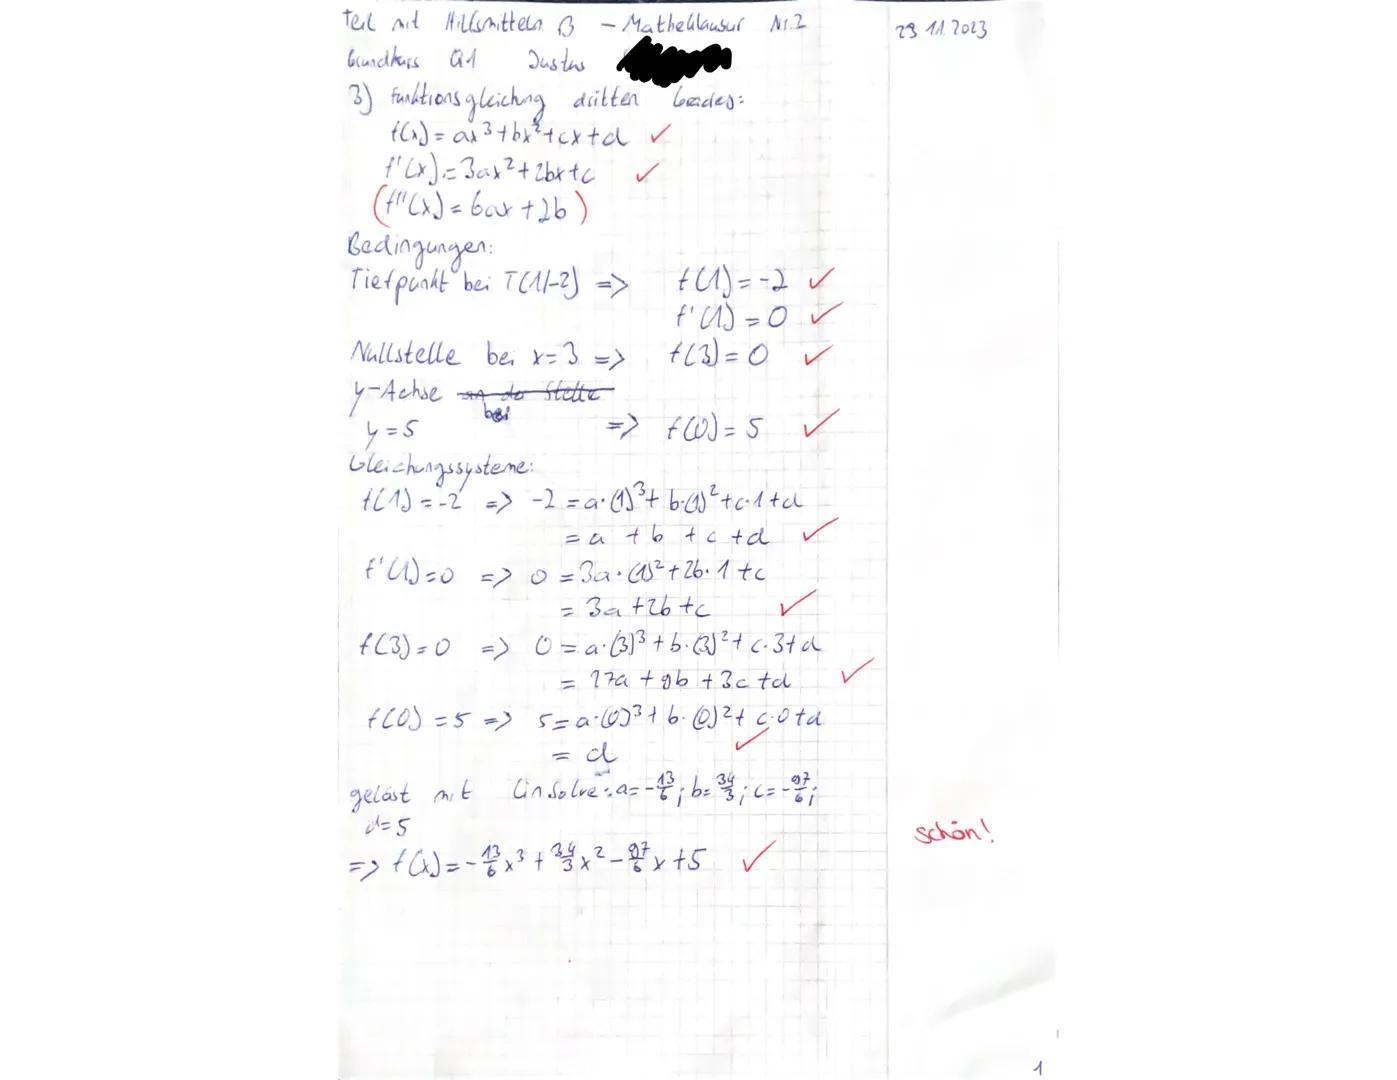 Teil mit Hilfsmitteln B – Matheklausur Nr. 2 29.11.2023
Grundkurs Q1 Justus
3) Funktionsgleichung dritten Grades:
f(x) = ax³ + bx² + cx + d ✓
f'(x) = 3ax² + 2bx + c ✓
(f''(x) = 6ax + 2b)
Bedingungen:
Tiefpunkt bei T(1|-2) => f(1) = -2 ✓
f'(1) = 0 ✓
Nullstelle bei x = 3 => f(3) = 0 ✓
y-Achse an der Stelle
bei
y = 5 => f(0) = 5 ✓
Gleichungssysteme:
f(1) = -2 => -2 = a·(1)³ + b·(1)² + c·1 + d
= a + b + c + d ✓
f'(1) = 0 => 0 = 3a·(1)² + 2b·1 + c
= 3a + 2b + c ✓
f(3) = 0 => 0 = a·(3)³ + b·(3)² + c·3 + d
= 27a + 9b + 3c + d ✓
f(0) = 5 => 5 = a·(0)³ + b·(0)² + c·0 + d
= d ✓
gelöst mit LinSolve: a = -13/6; b = 34/3; c = -97/6;
d = 5
schön!
=> f(x) = -13/6 x³ + 34/3 x² - 97/6 x + 5 ✓
1